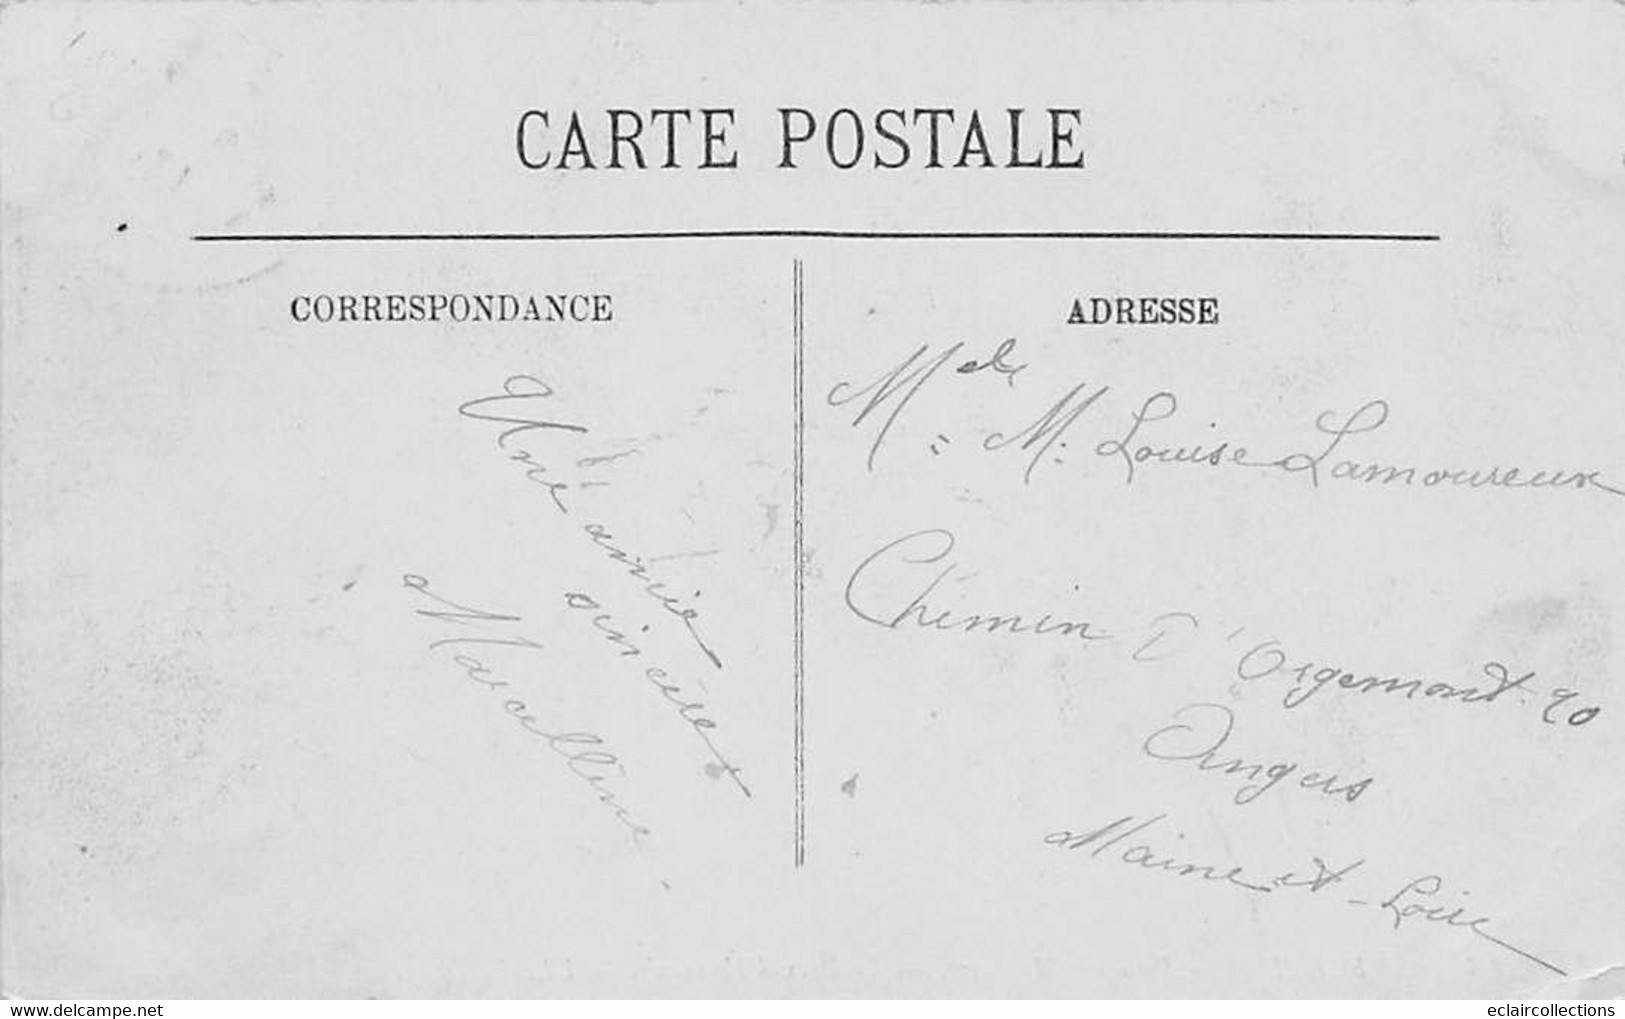 CARTE POSTALE
CORRESPONDANCE
Une amie
sincère
Marcelline
ADRESSE
Melle M. Louise Lamoureux
Chemin D'Orgemont 90
Angers
Maine et-Loire
www.delcampe.net
eclaircollections